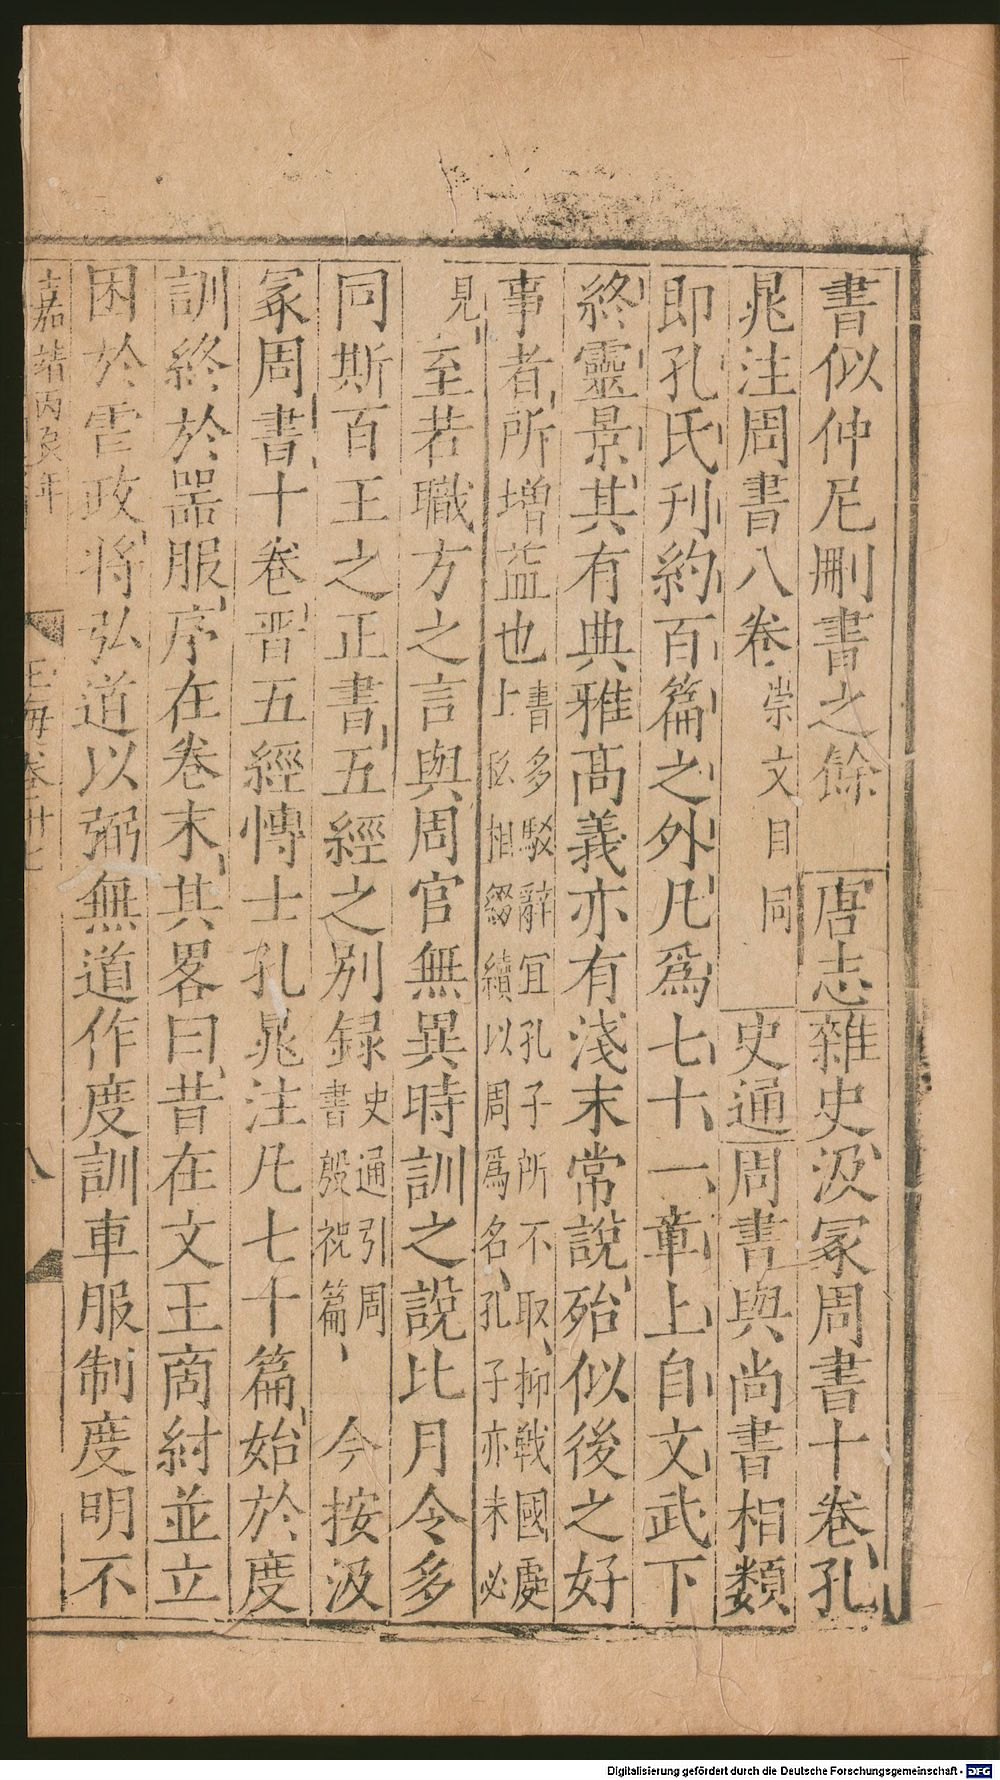 書似仲尼刪書之餘 唐志雜史汲冢周書十卷孔
晁注周書八卷崇文目同 史通周書與尚書相類
即孔氏刋約百篇之外凡爲七十一章上自文武下
終靈景其有典雅髙義亦有淺末常說殆似後之好
事者所增益也書多駁辭宜孔子所不取抑戰國處
士私相綴續以周爲名孔子亦未必
見至若職方之言與周官無異時訓之說比月令多
同斯百王之正書五經之别録史通引周
書殷祝篇今按汲
冢周書十卷晋五經愽士孔晁注凡七十篇始於度
訓終於器服序在卷末其畧曰昔在文王商紂並立
困於虐政將弘道以弼無道作度訓車服制度明不
嘉靖丙亥年
玉海卷卅七
八
Digitalisierung gefördert durch die Deutsche Forschungsgemeinschaft - DFG